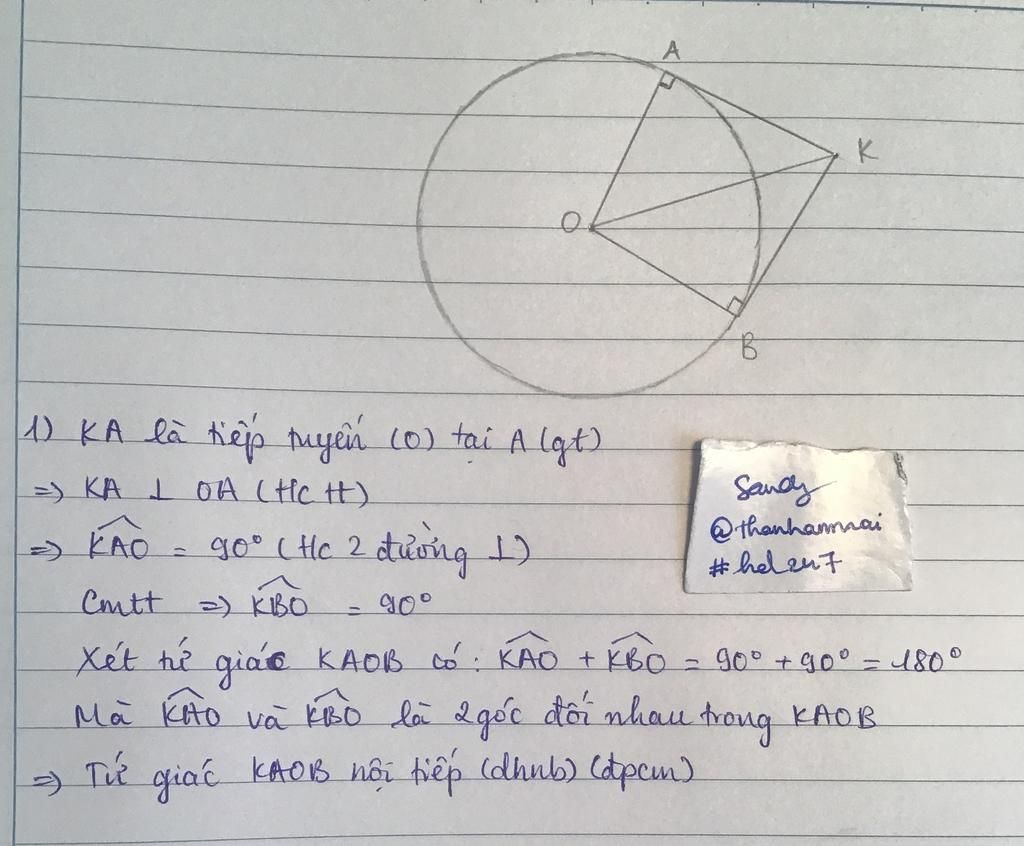 A
K
O
B
1) KA là tiếp tuyến (O) tại A (gt)
=> KA ⊥ OA (Hc H)
=> \widehat{KAO} = 90° (Hc 2 đường ⊥)
Cmtt => \widehat{KBO} = 90°
Xét tứ giác KAOB có: \widehat{KAO} + \widehat{KBO} = 90° + 90° = 180°
Mà \widehat{KAO} và \widehat{KBO} là 2 góc đối nhau trong KAOB
=> Tứ giác KAOB nội tiếp (dhnb) (đpcm)
Sandy
@thanhanmai
#hel247